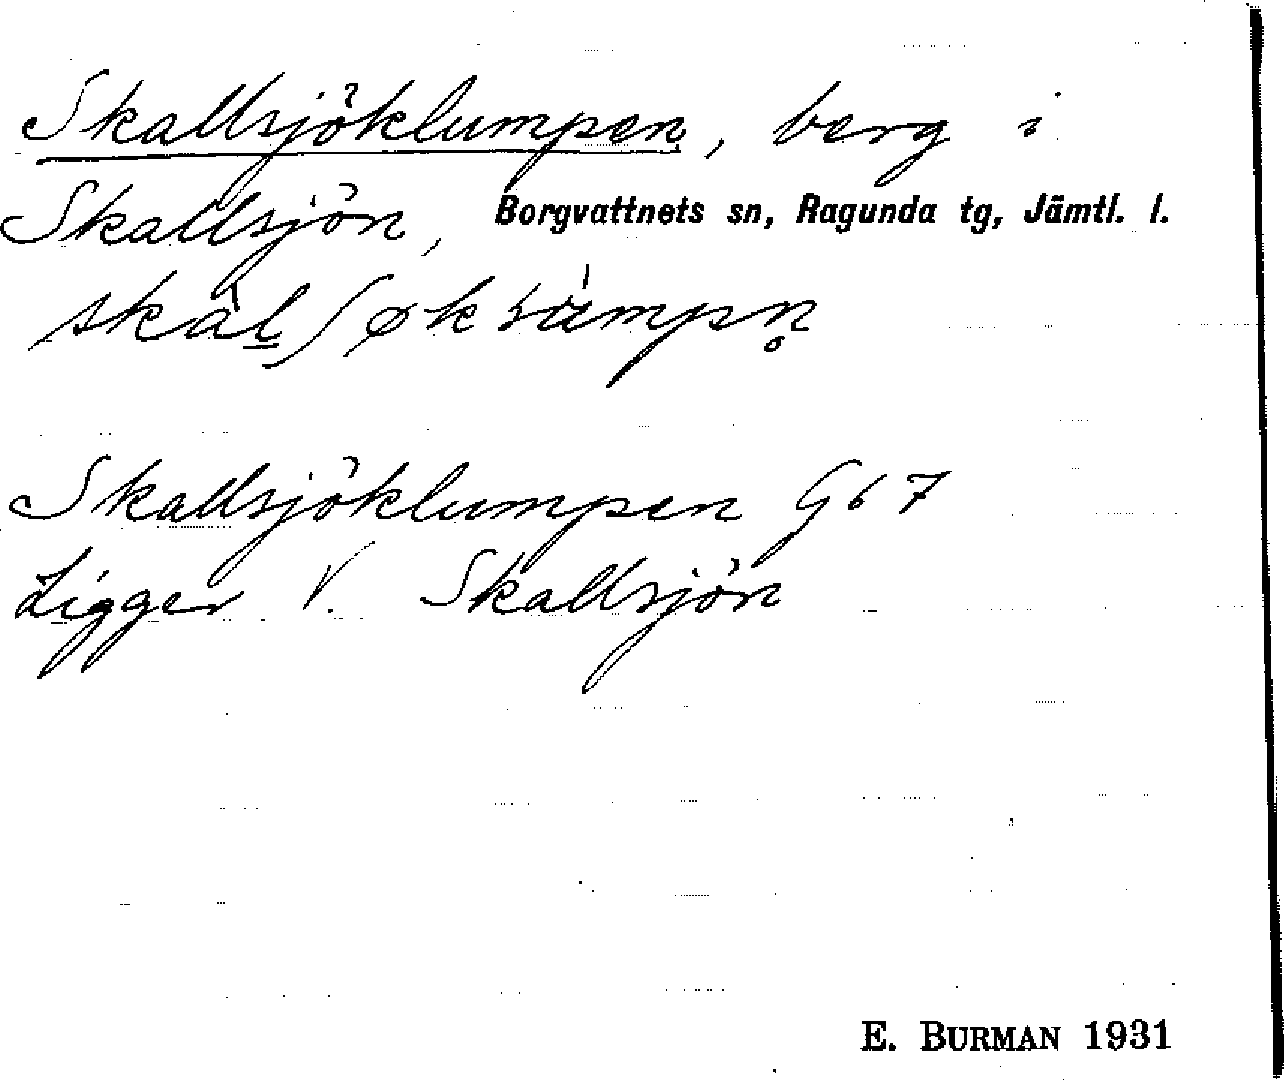 Skallsjöklumpen, berg i
Skallsjön, Borgvattnets sn, Ragunda tg, Jämtl. l.
Skallsjöklumpen Gb 7
Ligger V. Skallsjön
E. BURMAN 1931